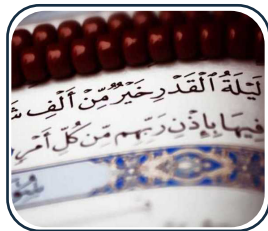 لَيْلَةُ ٱلْقَدْرِ خَيْرٌ مِّنْ أَلْفِ
فِيهَا بِإِذْنِ رَبِّهِم مِّن كُلِّ أَمْرٍ